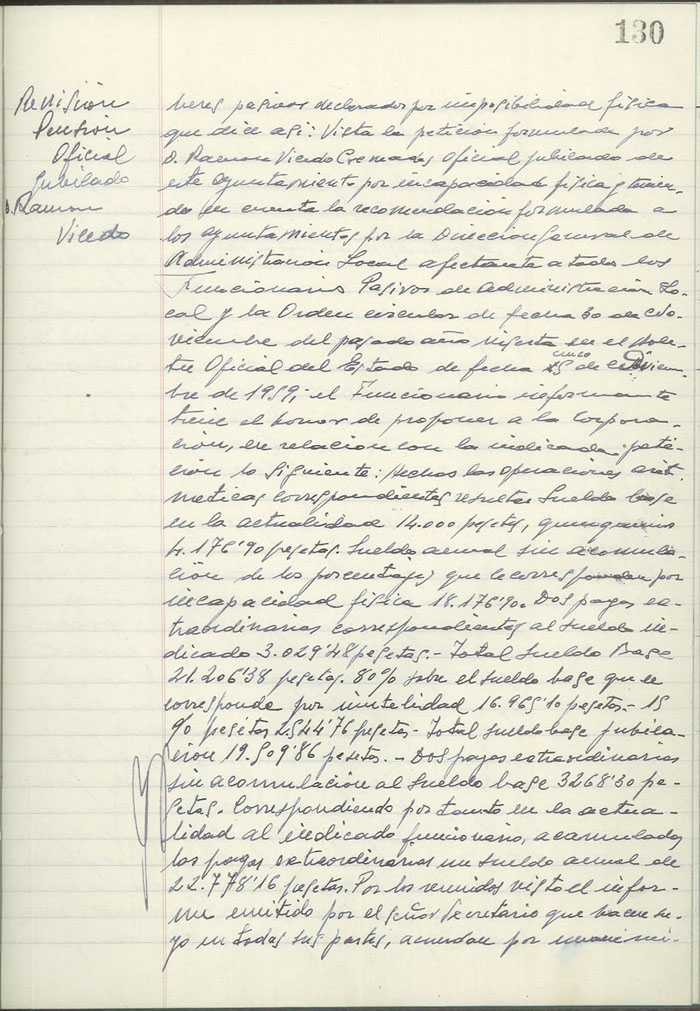 130
Revisión
Pensión
Oficial
Jubilado
D. Ramon
Vicedo
beres pasivos declarados por imposibilidad física
que dice asi: Vista la petición formulada por
D. Ramon Vicedo Cremades, Oficial jubilado de
este ayuntamiento por incapacidad fisica y tenien-
do en cuenta la recomendación formulada a
los ayuntamientos por la Dirección General de
Administración Local afectante a todos los
Funcionarios Pasivos de Administración Lo-
cal y la Orden circular de fecha 30 de No-
viembre del pasado año inserta en el Bole-
tin Oficial del Estado de fecha cinco de Diciem-
bre de 1959; el Funcionario informante
tiene el honor de proponer a la Corpora-
ción, en relación con la indicada peti-
ción lo siguiente: Hechas las operaciones arit-
meticas correspondientes resulta: Sueldo base
en la actualidad 14.000 pesetas, quinquenios
4.176'90 pesetas. Sueldo anual sin acomula-
ción de los porcentajes que le corresponden por
incapacidad física 18.176'90. Dos pagas ex-
traordinarias correspondientes al sueldo in-
dicado 3.029'48 pesetas.- Total Sueldo Base
21.206'38 pesetas. 80% sobre el sueldo base que le
corresponde por inutilidad 16.965'10 pesetas.- 15
% pesetas 2.544'76 pesetas- Total sueldo base jubila-
ción 19.509'86 pesetas.- Dos pagas extraordinarias
sin acomulación al sueldo base 3268'30 pe-
setas. Correspondiendo por tanto en la actua-
lidad al indicado funcionario, acumulados
las pagas extraordinarias un sueldo anual de
22.778'16 pesetas. Por los reunidos visto el infor-
me emitido por el señor Secretario que hacen su-
yo en todas sus partes, acuerdan por unanimi-